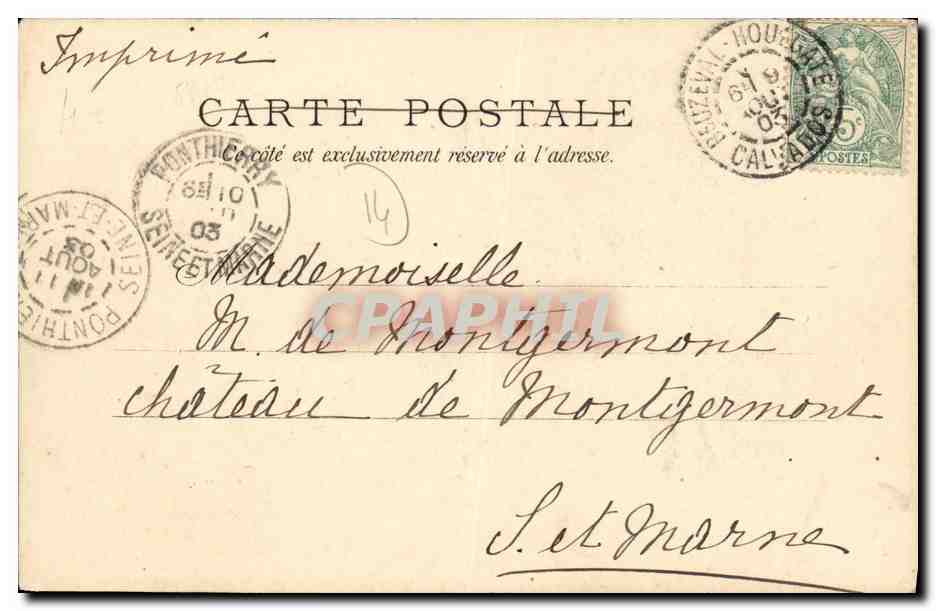 Imprimé
CARTE POSTALE
Ce côté est exclusivement réservé à l'adresse.
BEUZEVAL-HOULGATE
9
AOUT
03
CALVADOS
5c
POSTES
PONTHIERRY
10
03
SEINE ET MARNE
SEINE-ET-MAR
11
AOUT
03
PONTHIE
14
Mademoiselle
M. de Montgermont
château de Montgermont
S. et Marne
CPAPHIL